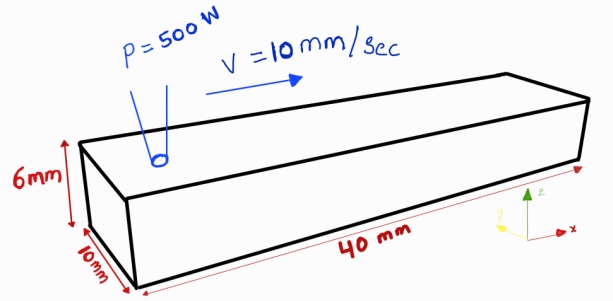 P = 500 W
V = 10 mm/sec
6mm
10mm
40 mm
z
x